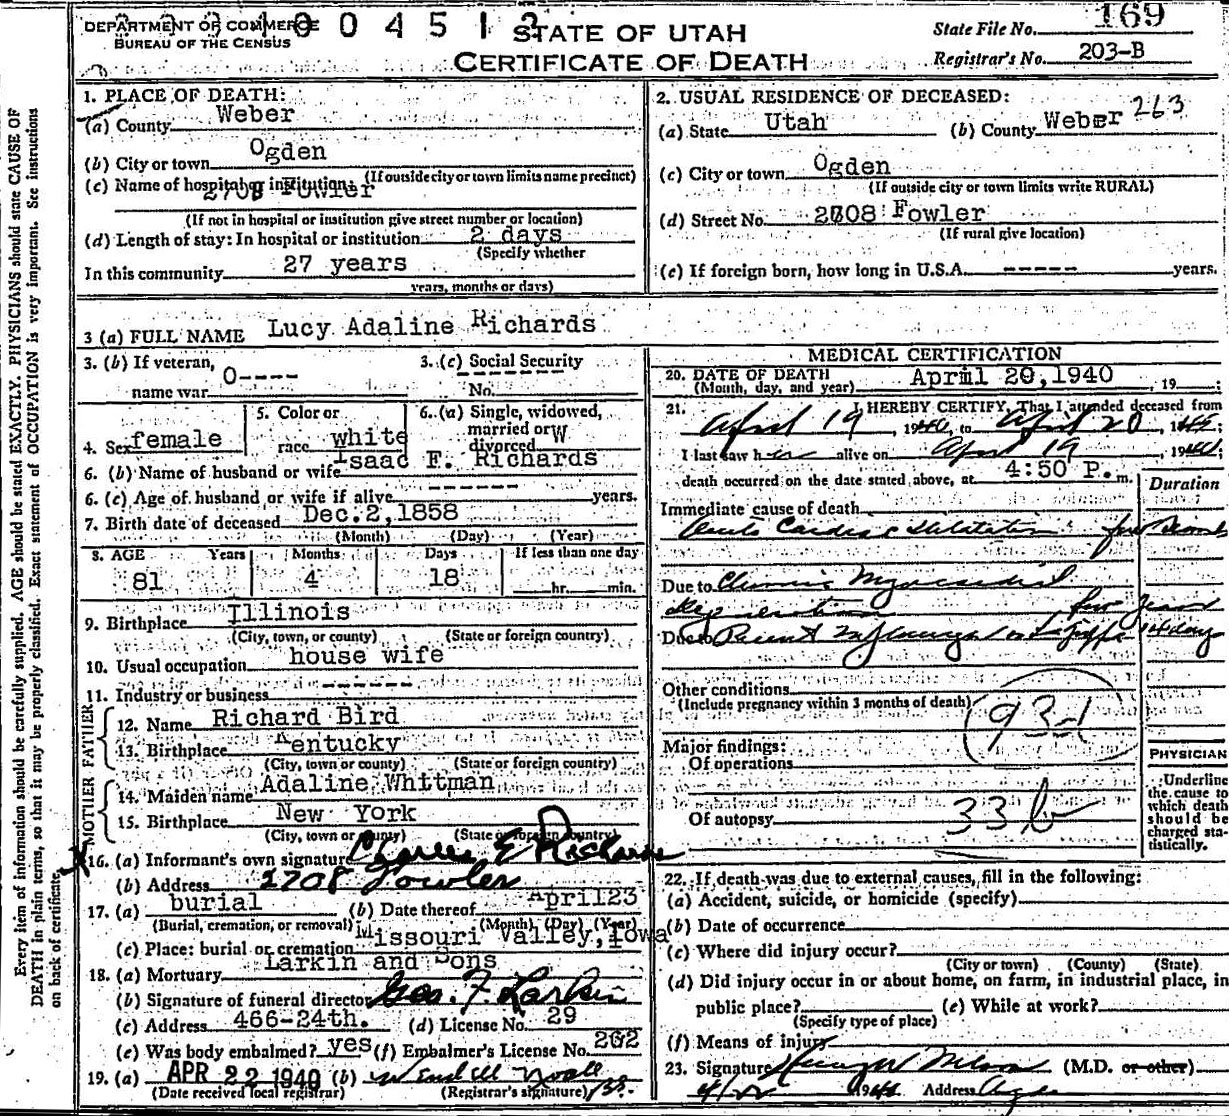 DEPARTMENT OF COMMERCE
BUREAU OF THE CENSUS
STATE OF UTAH
CERTIFICATE OF DEATH
State File No. 169
Registrar's No. 203-B
Every item of information should be carefully supplied. AGE should be stated EXACTLY. PHYSICIANS should state CAUSE OF
DEATH in plain terms, so that it may be properly classified. Exact statement of OCCUPATION is very important. See instructions
on back of certificate.
1. PLACE OF DEATH:
(a) County Weber
(b) City or town Ogden
(If outside city or town limits name precinct)
(c) Name of hospital or institution: 2708 Fowler
(If not in hospital or institution give street number or location)
(d) Length of stay: In hospital or institution 2 days
(Specify whether
In this community 27 years
years, months or days)
2. USUAL RESIDENCE OF DECEASED:
(a) State Utah (b) County Weber 263
(c) City or town Ogden
(If outside city or town limits write RURAL)
(d) Street No. 2708 Fowler
(If rural give location)
(e) If foreign born, how long in U.S.A. ----- years.
3 (a) FULL NAME Lucy Adaline Richards
3. (b) If veteran,
name war 0----
3. (c) Social Security
No. -------
4. Sex female
5. Color or
race white
6. (a) Single, widowed,
married or
divorced W
6. (b) Name of husband or wife Isaac F. Richards
6. (c) Age of husband or wife if alive ------- years.
7. Birth date of deceased Dec.2,1858
(Month) (Day) (Year)
8. AGE Years Months Days If less than one day
81 4 18 hr. min.
9. Birthplace Illinois
(City, town, or county) (State or foreign country)
10. Usual occupation house wife
11. Industry or business -------
FATHER
12. Name Richard Bird
13. Birthplace Kentucky
(City, town or county) (State or foreign country)
MOTHER
14. Maiden name Adaline Whitman
15. Birthplace New York
(City, town or county) (State or foreign country)
X 16. (a) Informant's own signature Charles E Richards
(b) Address 2708 Fowler
17. (a) burial (b) Date thereof April23
(Burial, cremation, or removal) (Month) (Day) (Year)
(c) Place: burial or cremation Missouri Valley, Iowa
18. (a) Mortuary Larkin and Sons
(b) Signature of funeral director Geo. F. Larkin
(c) Address 466-24th. (d) License No. 29
(e) Was body embalmed? yes (f) Embalmer's License No. 202
19. (a) APR 22 1940 (b)
(Date received local registrar) (Registrar's signature)
MEDICAL CERTIFICATION
20. DATE OF DEATH April 20,1940, 19 ;
(Month, day, and year)
21. I HEREBY CERTIFY, That I attended deceased from
April 19, 1940, to April 20, 1940;
I last saw her alive on April 19, 1940;
death occurred on the date stated above, at 4:50 P. m.
Duration
Immediate cause of death
Acute Cardiac Dilatation few
Due to Chronic Myocardial
Degeneration few years
Due to Recent Influenza or LaGrippe 14 days
Other conditions
(Include pregnancy within 3 months of death)
93d
Major findings:
Of operations
33 b
Of autopsy
PHYSICIAN
Underline
the cause to
which death
should be
charged sta-
tistically.
22. If death was due to external causes, fill in the following:
(a) Accident, suicide, or homicide (specify)
(b) Date of occurrence
(c) Where did injury occur?
(City or town) (County) (State)
(d) Did injury occur in or about home, on farm, in industrial place, in
public place? (e) While at work?
(Specify type of place)
(f) Means of injury
23. Signature (M.D. or other)
4/22 1940 Address